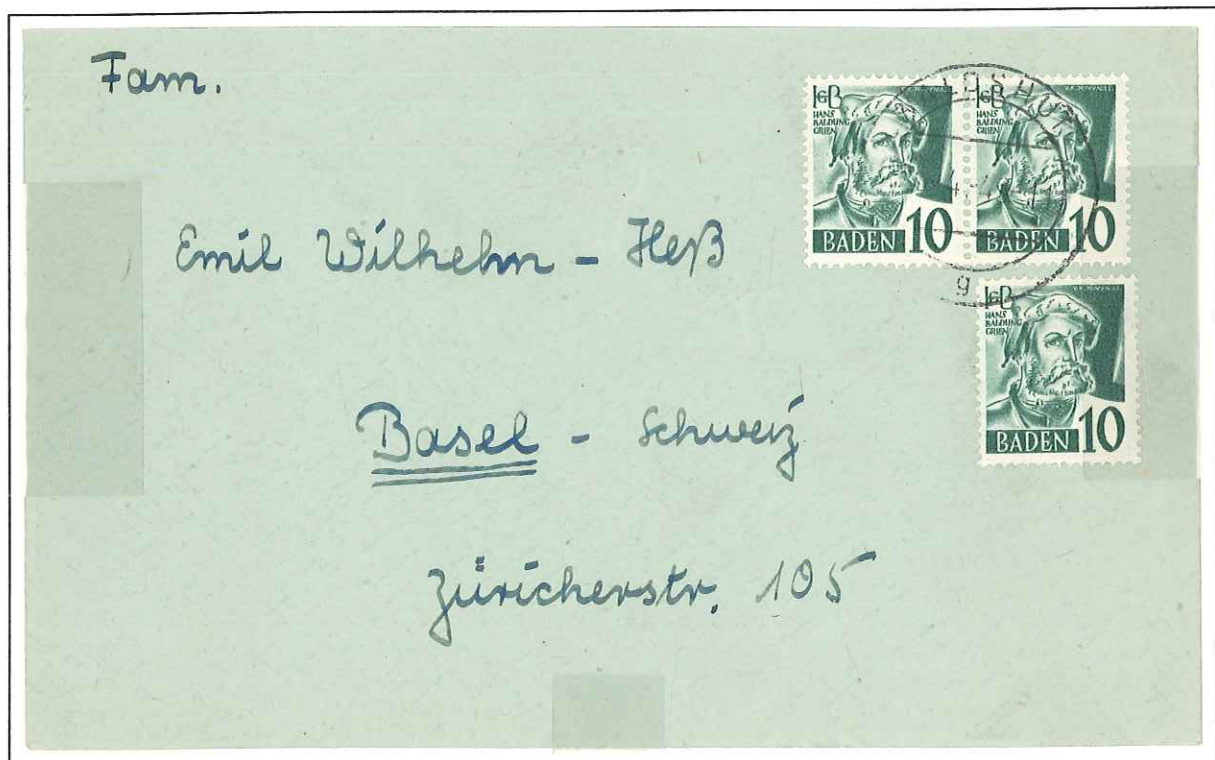 Fam.
Emil Wilhelm - Heß
Basel - Schweiz
Züricherstr. 105
HGB
HANS
BALDUNG
GRIEN
BADEN 10
HGB
HANS
BALDUNG
GRIEN
BADEN 10
HGB
HANS
BALDUNG
GRIEN
BADEN 10
g